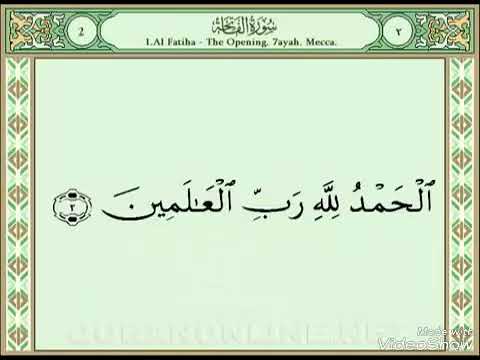 2 سورة الفاتحة ٢
1.Al Fatiha - The Opening. 7ayah. Mecca.
ٱلْحَمْدُ لِلَّهِ رَبِّ ٱلْعَـٰلَمِينَ ٢
QURANONLINE.NET
Made with
VideoShow